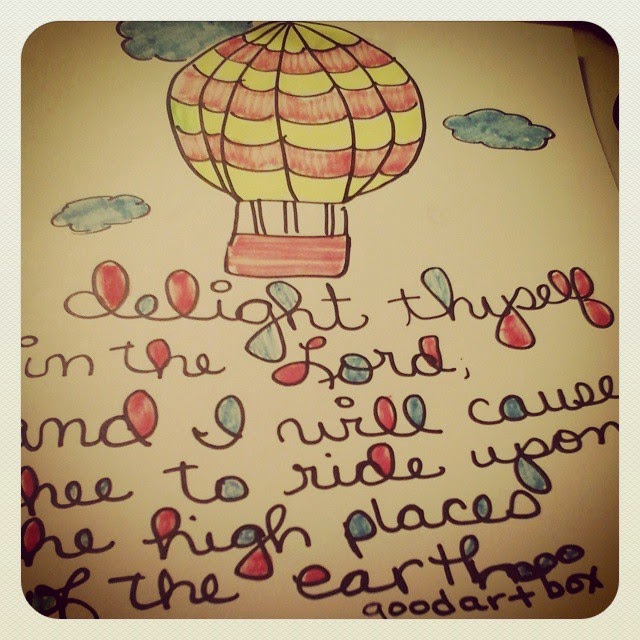 delight thyself
in the Lord;
and I will cause
hee to ride upon
he high places
of the earth
goodartbox